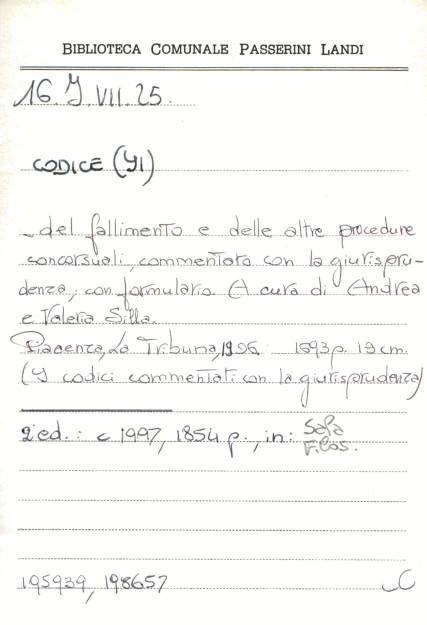 BIBLIOTECA COMUNALE PASSERINI LANDI
16. J. VII. 25.
CODICE (YI)
- del fallimento e delle altre procedure
concorsuali, commentato con la giurispru-
denza, con formulario. A cura di Andrea
e Valeria Silla.
Piacenza, La Tribuna, 1996. 1693 p. 19 cm.
(I codici commentati con la giurisprudenza)
2ª ed.: c 1997, 1854 p., in: Sala
F. Cos.
195939, 198657
C